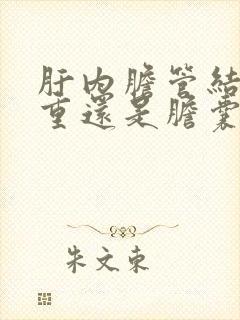 肝内膽管結
重還是膽囊
朱文東